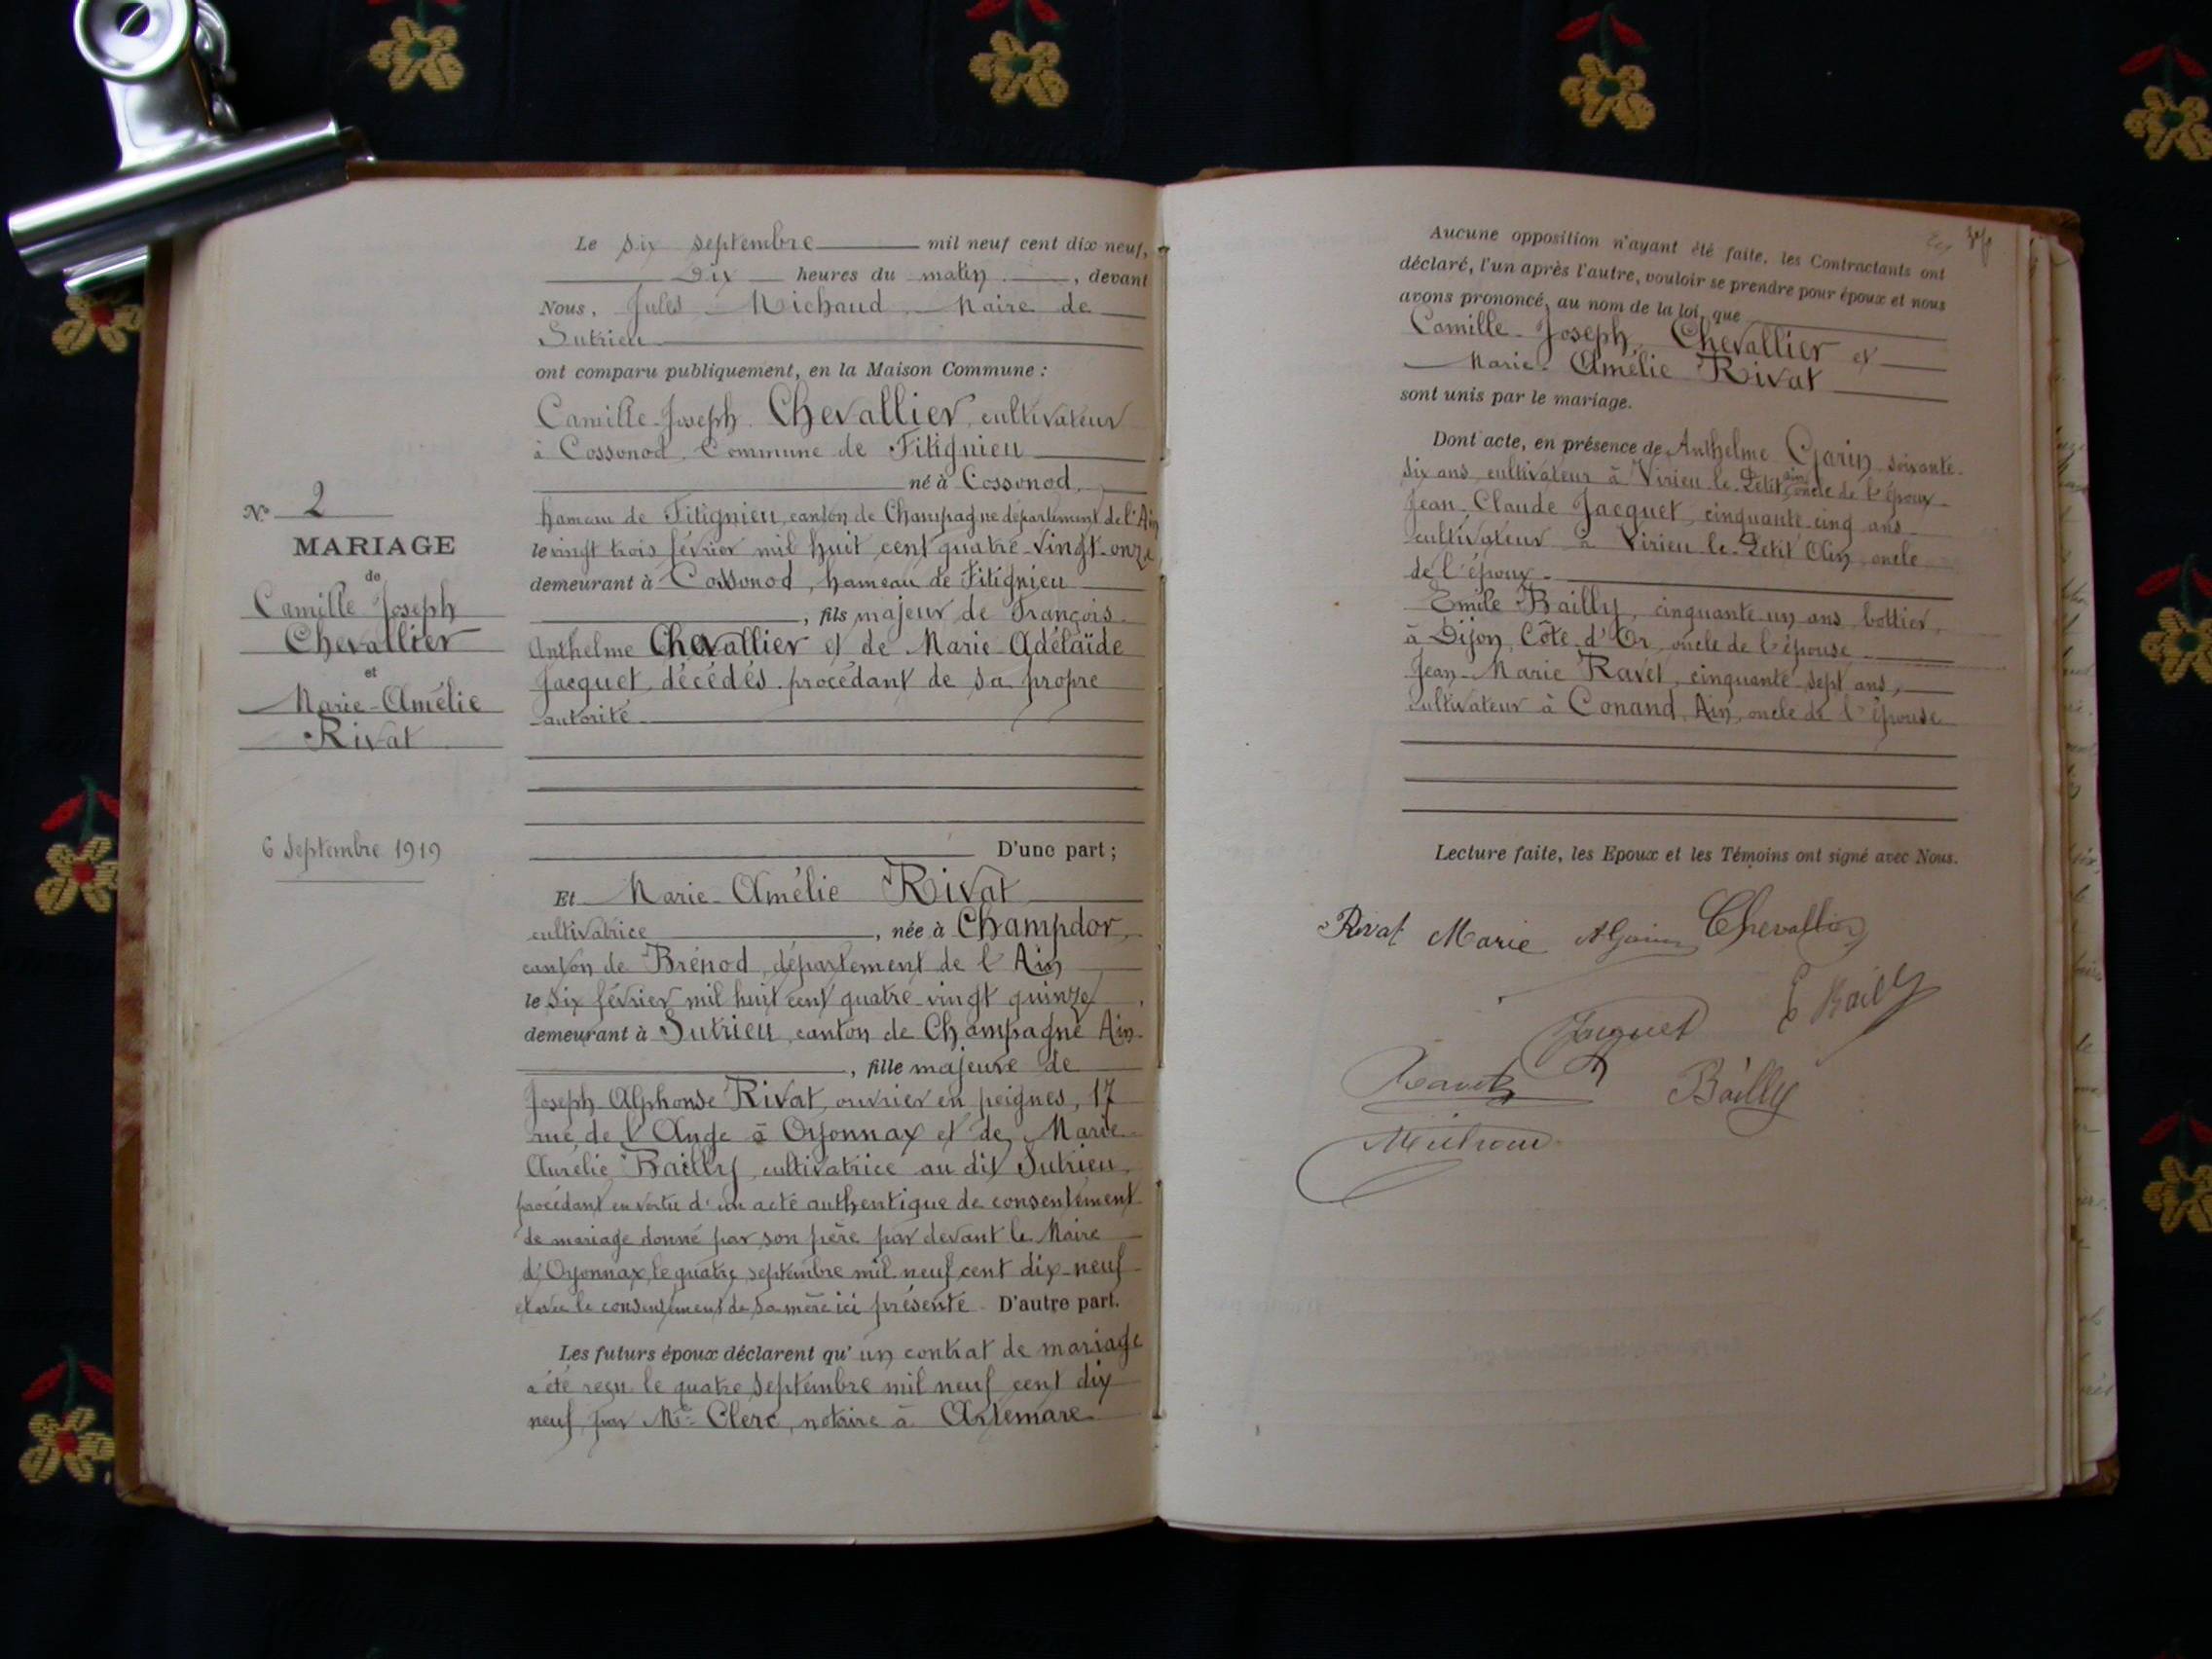 N° 2
MARIAGE
de
Camille Joseph
Chevallier
et
Marie-Amélie
Rivat
6 Septembre 1919
Le six septembre mil neuf cent dix neuf,
Dix heures du matin, devant
Nous, Jules Michaud Maire de
Sutrieu
ont comparu publiquement, en la Maison Commune :
Camille-Joseph Chevallier, cultivateur
à Cossonod Commune de Fitignieu
né à Cossonod,
hameau de Fitignieu, canton de Champagne département de l'Ain
le vingt trois février mil huit cent quatre-vingt-onze
demeurant à Cossonod, hameau de Fitignieu
, fils majeur de François
Anthelme Chevallier et de Marie-Adélaïde
Jacquet, décédés. procédant de sa propre
autorité
D'une part ;
Et Marie-Amélie Rivat
cultivatrice, née à Champdor,
canton de Brénod, département de l'Ain
le six février mil huit cent quatre-vingt quinze,
demeurant à Sutrieu, canton de Champagne Ain
, fille majeure de
Joseph-Alphonse Rivat, ouvrier en peignes, 17
rue de l'Ange à Oyonnax et de Marie-
Aurélie Bailly, cultivatrice au dit Sutrieu,
procédant en vertu d'un acte authentique de consentement
de mariage donné par son père par devant le Maire
d'Oyonnax, le quatre septembre mil neuf cent dix-neuf
et avec le consentement de sa mère ici présente D'autre part.
Les futurs époux déclarent qu'un contrat de mariage
a été reçu le quatre septembre mil neuf cent dix
neuf, par Me Clerc, notaire à Artemare
Aucune opposition n'ayant été faite, les Contractants ont
déclaré, l'un après l'autre, vouloir se prendre pour époux et nous
avons prononcé, au nom de la loi, que
Camille-Joseph Chevallier et
Marie-Amélie Rivat
sont unis par le mariage.
Dont acte, en présence de Anthelme Garin soixante-
six ans, cultivateur à Virieu-le-Petit, Ain, oncle de l'époux
Jean-Claude Jacquet, cinquante-cinq ans
cultivateur à Virieu-le-Petit Ain, oncle
de l'époux
Emile Bailly, cinquante-un ans, bottier,
à Dijon, Côte d'Or, oncle de l'épouse
Jean-Marie Ravet, cinquante-sept ans,
cultivateur à Conand, Ain, oncle de l'épouse
Lecture faite, les Epoux et les Témoins ont signé avec Nous.
Rivat Marie Chevallier
E Bailly
Jacquet
Ravet Bailly
Michaud